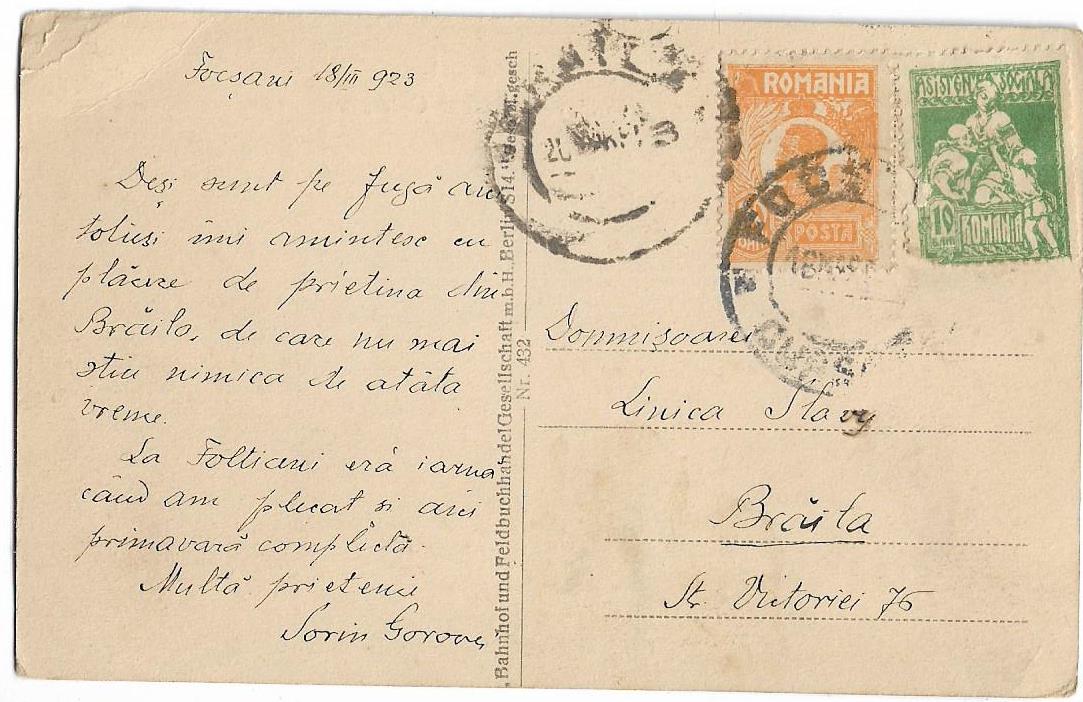 Focșani 18/III 923
Deși sunt pe fugă
totuși imi amintesc cu
plăcere de prietina din
Brăila, de care nu mai
știu nimica de atâta
vreme.
La Folticeni eră iarna
când am plecat si aici
primavară complectă.
Multă prietenie
Sorin Gorovei
"Bahnhof und Feldbuchhandel Gesellschaft m.b.H. Berlin S14.
gesch
Nr. 432
ROMANIA
POSTA
ASISTENȚA SOCIALA
10
ROMANIA
Domnișoarei
Linica Slavy
Brăila
Str. Victoriei 76